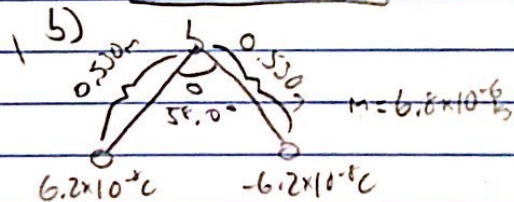 1 b)
0.530m
0.530m
58.0°
m=6.8×10⁻⁶
6.2×10⁻⁸C
-6.2×10⁻⁸C